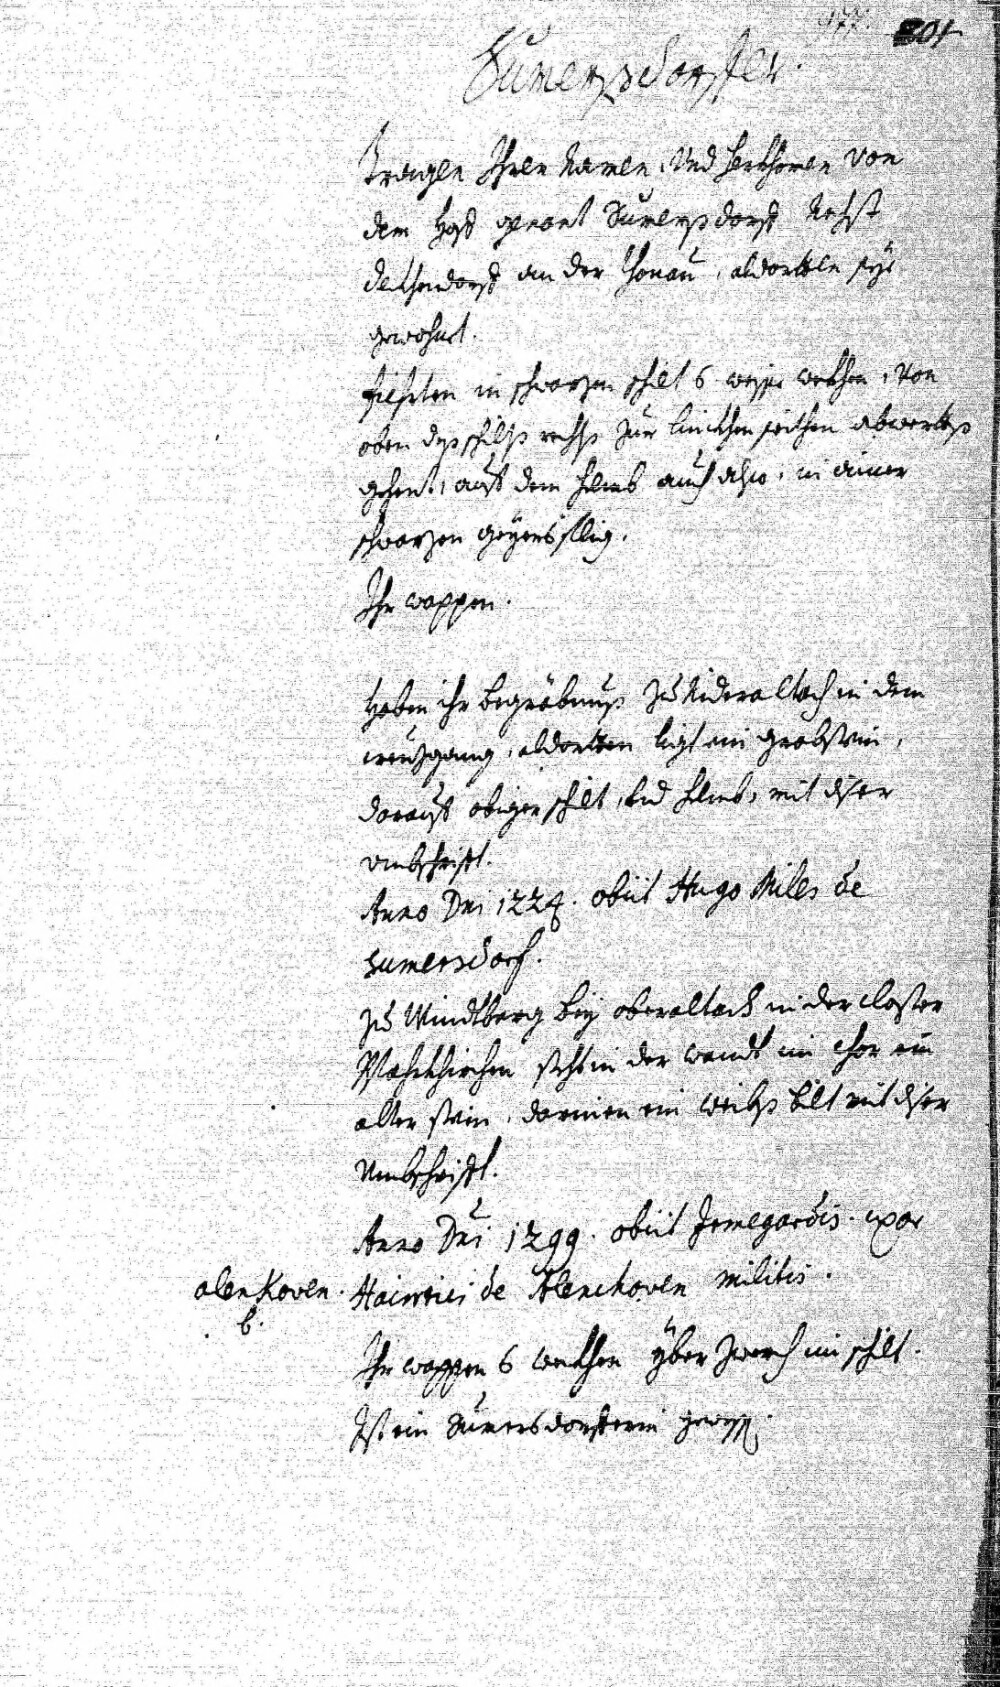 177. 201
Sumersdorffer.
Tragen Ihren Namen, und herkhomen von
dem Hoff genant Sumerßdorff Nechst
Dekhendorff an der Thonau, aldortten sye
gewohnet.
fiehrten in schwarzen schilt 6 weisse wekhen, von
oben deß schilts rechts zur linckhen seithen abwertß
gehent, auf dem Helmb auch also, in ainer
schwarzen geyersflüg.
Ihr wappen.
Haben ihr begräbnuß zu Nideraltach in dem
creuzgang, aldortten ligt ein grabstein,
darauf obiger schilt, und Helmb, mit diser
umbschrifft.
Anno Dni 1224. obiit Hugo Miles de
Sumersdorf.
Zu Windtberg bey oberaltach in der closter
Pfahrkhirchen steht in der wandt im chor ein
alter stein, darinen ein weibß bilt mit diser
Umbschrifft.
Anno Dni 1299. obiit Jrmegardis. uxor
alenkoven. Hainrici de Alenchoven militis.
b.
Ihr wappen 6 wekhen yber zwerch im schilt.
Ist ein Sumersdorfferin gewest.